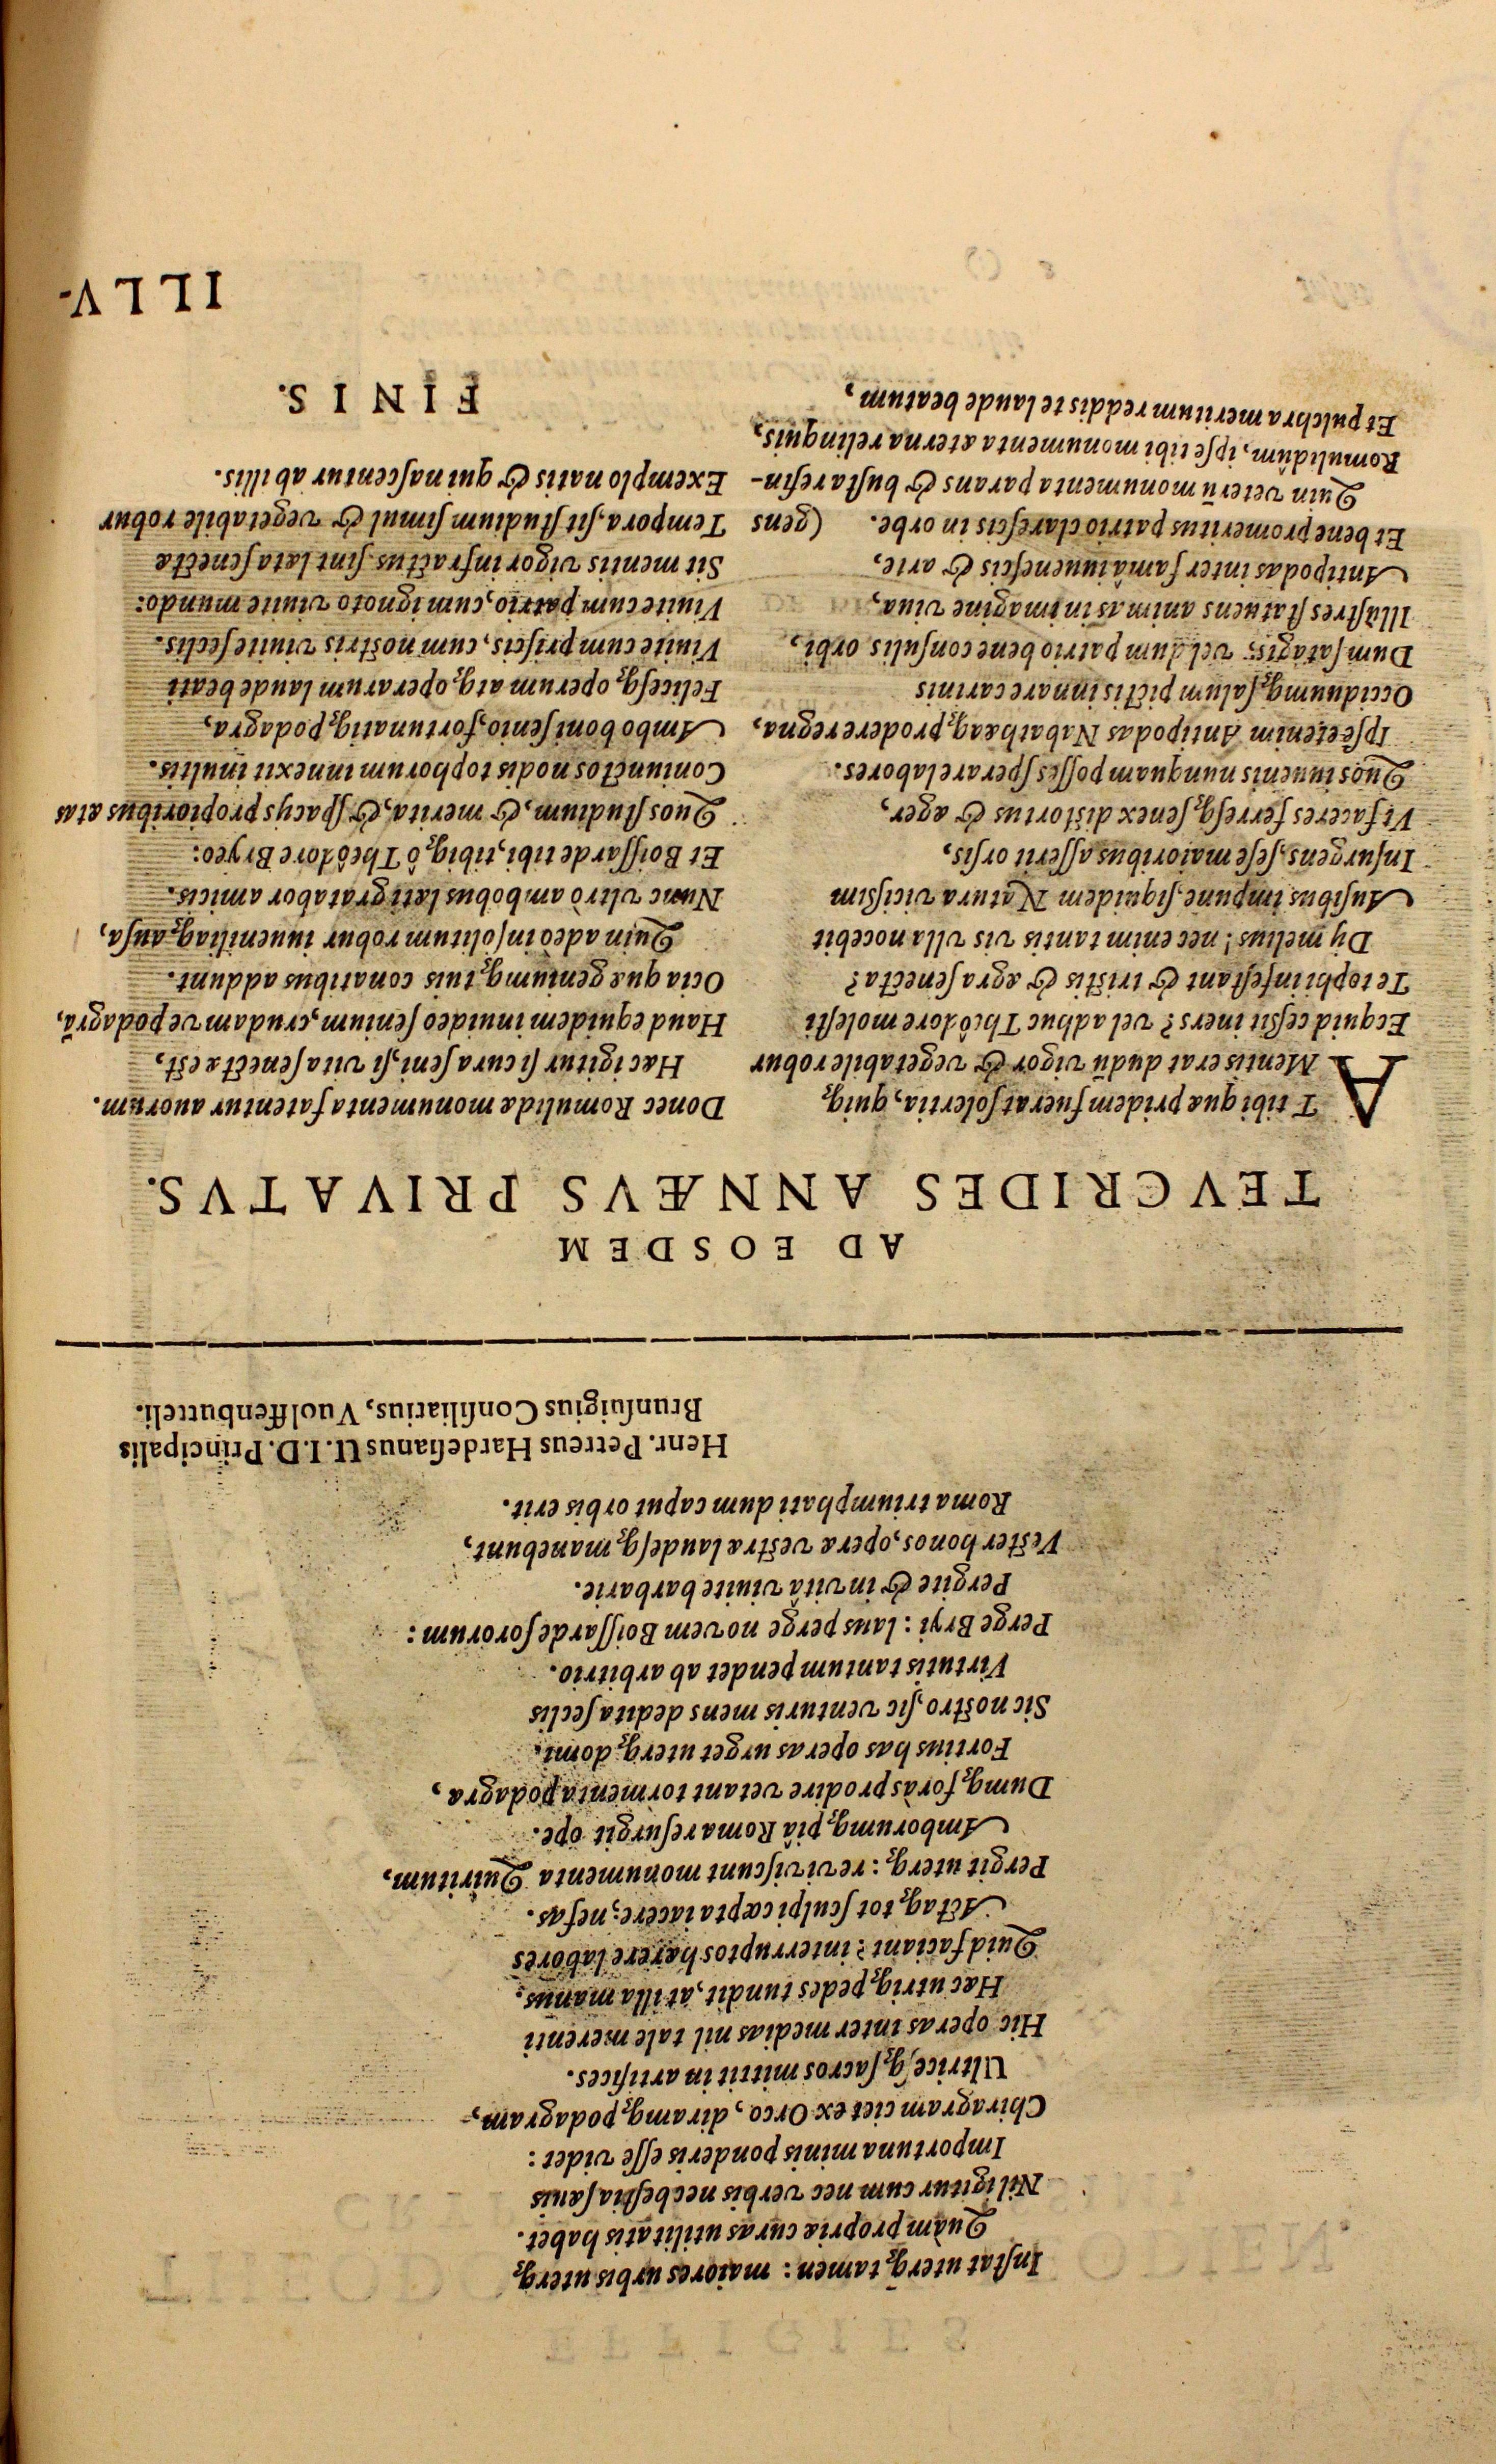 Instat uterq; tamen: maiores urbis uterq;
Quàm propriæ curas utilitatis habet.
Nil igitur cum nec verbis nec bestia sæuis
Importuna minis ponderis esse videt:
Chiragram ciet ex Orco, diramq; podagram,
Ultricesq; sacros mittit in artifices.
Hic operas inter medias nil tale merenti
Hæc utriq; pedes tundit, at illa manus.
Quid faciant? interruptos hærere labores
Actaq; tot sculpi cœpta iacere; nefas.
Pergit uterq;: reviviscunt monumenta Quiritum,
Amborumq; piâ Roma resurgit ope.
Dumq; foràs prodire vetant tormenta podagræ,
Fortius has operas urget uterq; domi.
Sic nostro, sic venturis mens dedita seclis
Virtutis tantum pendet ab arbitrio.
Perge Bryi: laus perge novem Boissarde sororum:
Pergite & invitâ viuite barbarie.
Vester honos, operæ vestræ laudesq; manebunt,
Roma triumphati dum caput orbis erit.
Henr. Petreus Hardesianus U.I.D. Principalis
Brunsuigius Consiliarius, Vuolffenbutteli.
AD EOSDEM
TEVCRIDES ANNÆVS PRIVATVS.
AT tibi quæ pridem fuerat solertia, quiq;
Mentis erat dudū vigor & vegetabile robur
Ecquid cessit iners? vel adhuc Theôdore molesti
Te tophi infestant & tristis & ægra senecta?
Dij melius! nec enim tantis vis vlla nocebit
Ausibus impune, siquidem Natura vicissim
Insurgens, sese maioribus asserit orsis,
Vt faceres ferresq; senex distortus & æger,
Quos iuuenis nunquam posses sperare labores.
Ipse etenim Antipodas Nabathæaq; prodere regna,
Occiduumq; salum pictis innare carinis
Dum satagis; vel dum patrio bene consulis orbi,
Illustres statuens animas in imagine viua,
Antipodas inter famâ iuuenescis & arte,
Et bene promeritus patrio clarescis in orbe. (gens
Quin veterū monumenta parans & busta resin-
Romulidûm, ipse tibi monumenta æterna relinquis,
Et pulchra meritum reddis te laude beatum,
Donec Romulidæ monumenta fatentur auorum.
Hæc igitur si cura seni, si vita senectæ est,
Haud equidem inuideo senium, crudamve podagrā,
Ocia quæ geniumq; tuis conatibus addunt.
Quin adeo insolitum robur iuueniliaq; ausa,
Nunc vltrò ambobus læti gratabor amicis.
Et Boissarde tibi, tibiq; ô Theôdore Bryeo:
Quos studium, & merita, & spacijs propioribus ætas
Coniunctos nodis tophorum innexit inultis.
Ambo boni senio, fortunatiq; podagra,
Felicesq; operum atq; operarum laude beati
Viuite cum priscis, cum nostris viuite seclis.
Viuite cum patrio, cum ignoto viuite mundo:
Sit mentis vigor infractus, sint læta senectæ
Tempora, sit studium simul & vegetabile robur
Exemplo natis & qui nascentur ab illis.
FINIS.
ILLV-